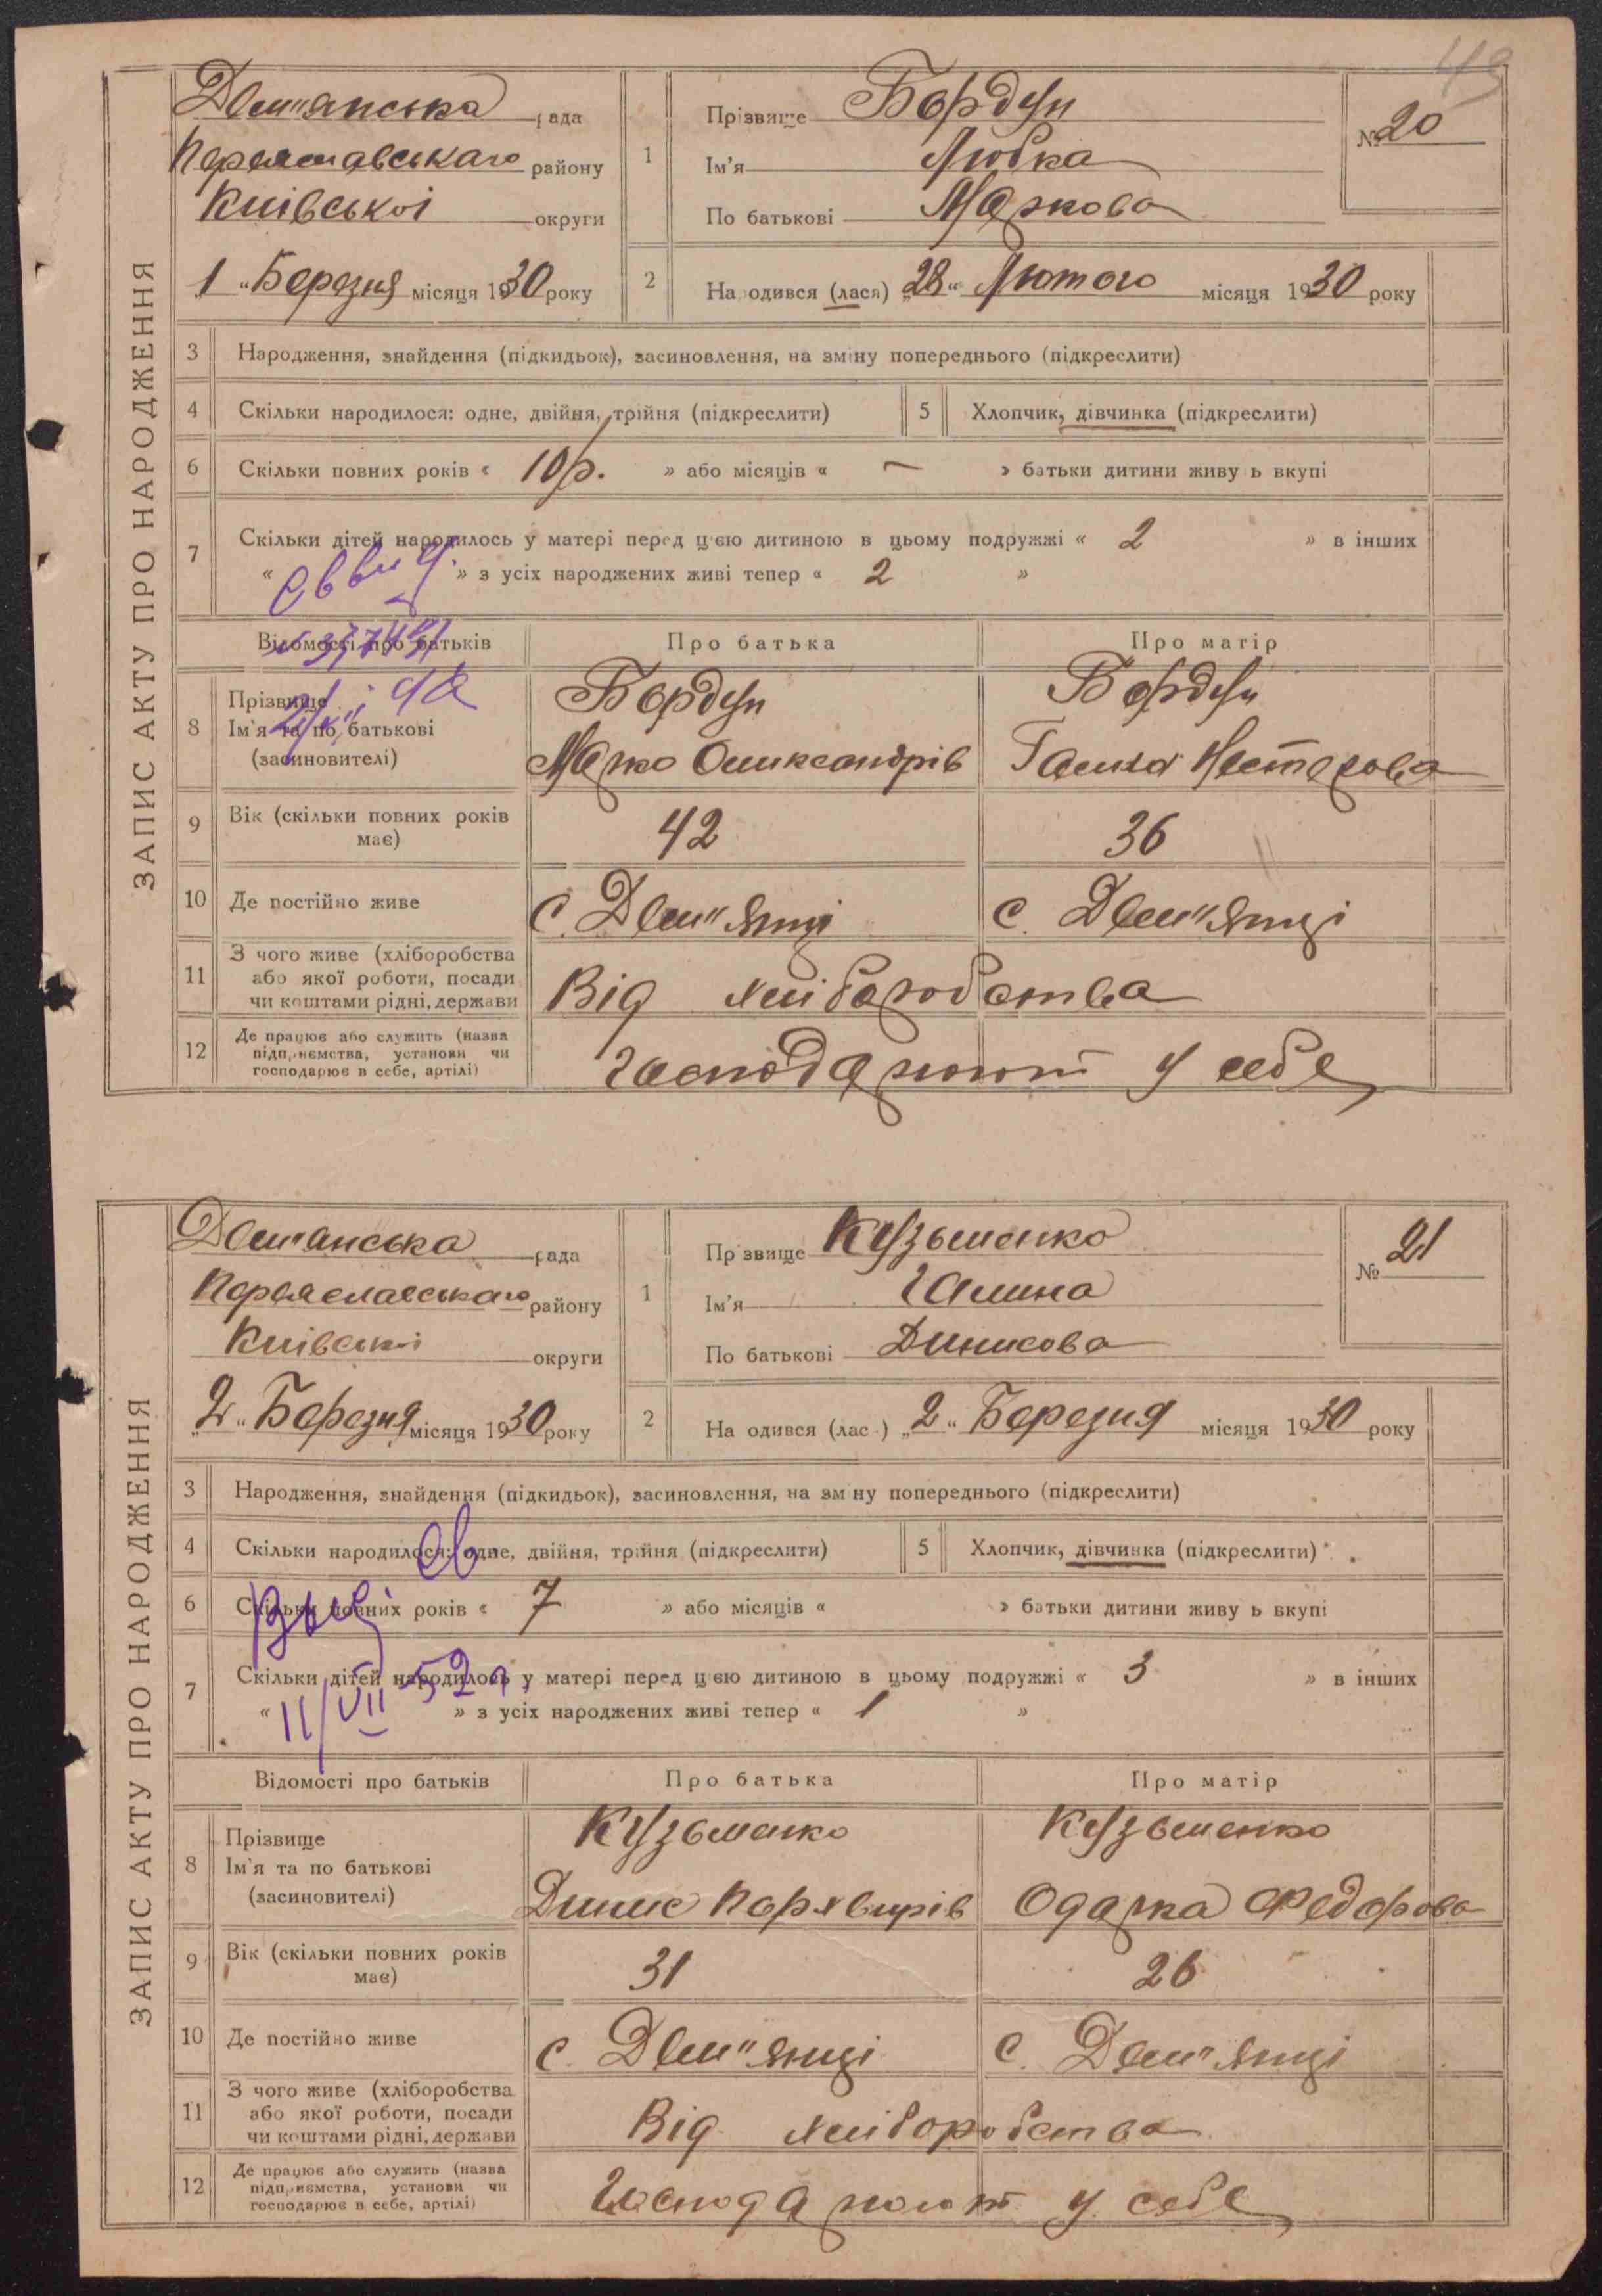 49
ЗАПИС АКТУ ПРО НАРОДЖЕННЯ
Дем"янська рада
Переяславського району
Київської округи
„1“ Березня місяця 1930 року
1
Прізвище Бордун
Ім'я Любка
По батькові Маркова
№ 20
2
Народився (лася) „28“ Лютого місяця 1930 року
3 Народження, знайдення (підкидьок), засиновлення, на зміну попереднього (підкреслити)
4 Скільки народилося: одне, двійня, трійня (підкреслити) 5 Хлопчик, дівчинка (підкреслити)
6 Скільки повних років « 10 р. » або місяців « — » батьки дитини живуть вкупі
7 Скільки дітей народилось у матері перед цією дитиною в цьому подружжі « 2 » в інших
« » з усіх народжених живі тепер « 2 »
Відомості про батьків Про батька Про матір
8 Прізвище Бордун Бордун
Ім'я та по батькові Марко Олександрів Ганна Нестерова
(засиновителі)
9 Вік (скільки повних років має) 42 36
10 Де постійно живе с. Дем"янці с. Дем"янці
11 З чого живе (хліборобства
або якої роботи, посади
чи коштами рідні, держави Від хліборобства
12 Де працює або служить (назва
підприємства, установи чи
господарює в себе, артілі) Господарюют у себе
ЗАПИС АКТУ ПРО НАРОДЖЕННЯ
Дем"янська рада
Переяславського району
Київської округи
„2“ Березня місяця 1930 року
1
Прізвище Кузьменко
Ім'я Галина
По батькові Динисова
№ 21
2
Народився (лас ) „2“ Березня місяця 1930 року
3 Народження, знайдення (підкидьок), засиновлення, на зміну попереднього (підкреслити)
4 Скільки народилося: одне, двійня, трійня (підкреслити) 5 Хлопчик, дівчинка (підкреслити)
6 Скільки повних років « 7 » або місяців « » батьки дитини живуть вкупі
7 Скільки дітей народилось у матері перед цією дитиною в цьому подружжі « 3 » в інших
« » з усіх народжених живі тепер « 1 »
11/VII 52
Відомості про батьків Про батька Про матір
8 Прізвище Кузьменко Кузьменко
Ім'я та по батькові Динис Одарка Федорова
(засиновителі)
9 Вік (скільки повних років має) 31 26
10 Де постійно живе с. Дем"янці с. Дем"янці
11 З чого живе (хліборобства
або якої роботи, посади
чи коштами рідні, держави Від хліборобства
12 Де працює або служить (назва
підприємства, установи чи
господарює в себе, артілі) Господарюют у себе